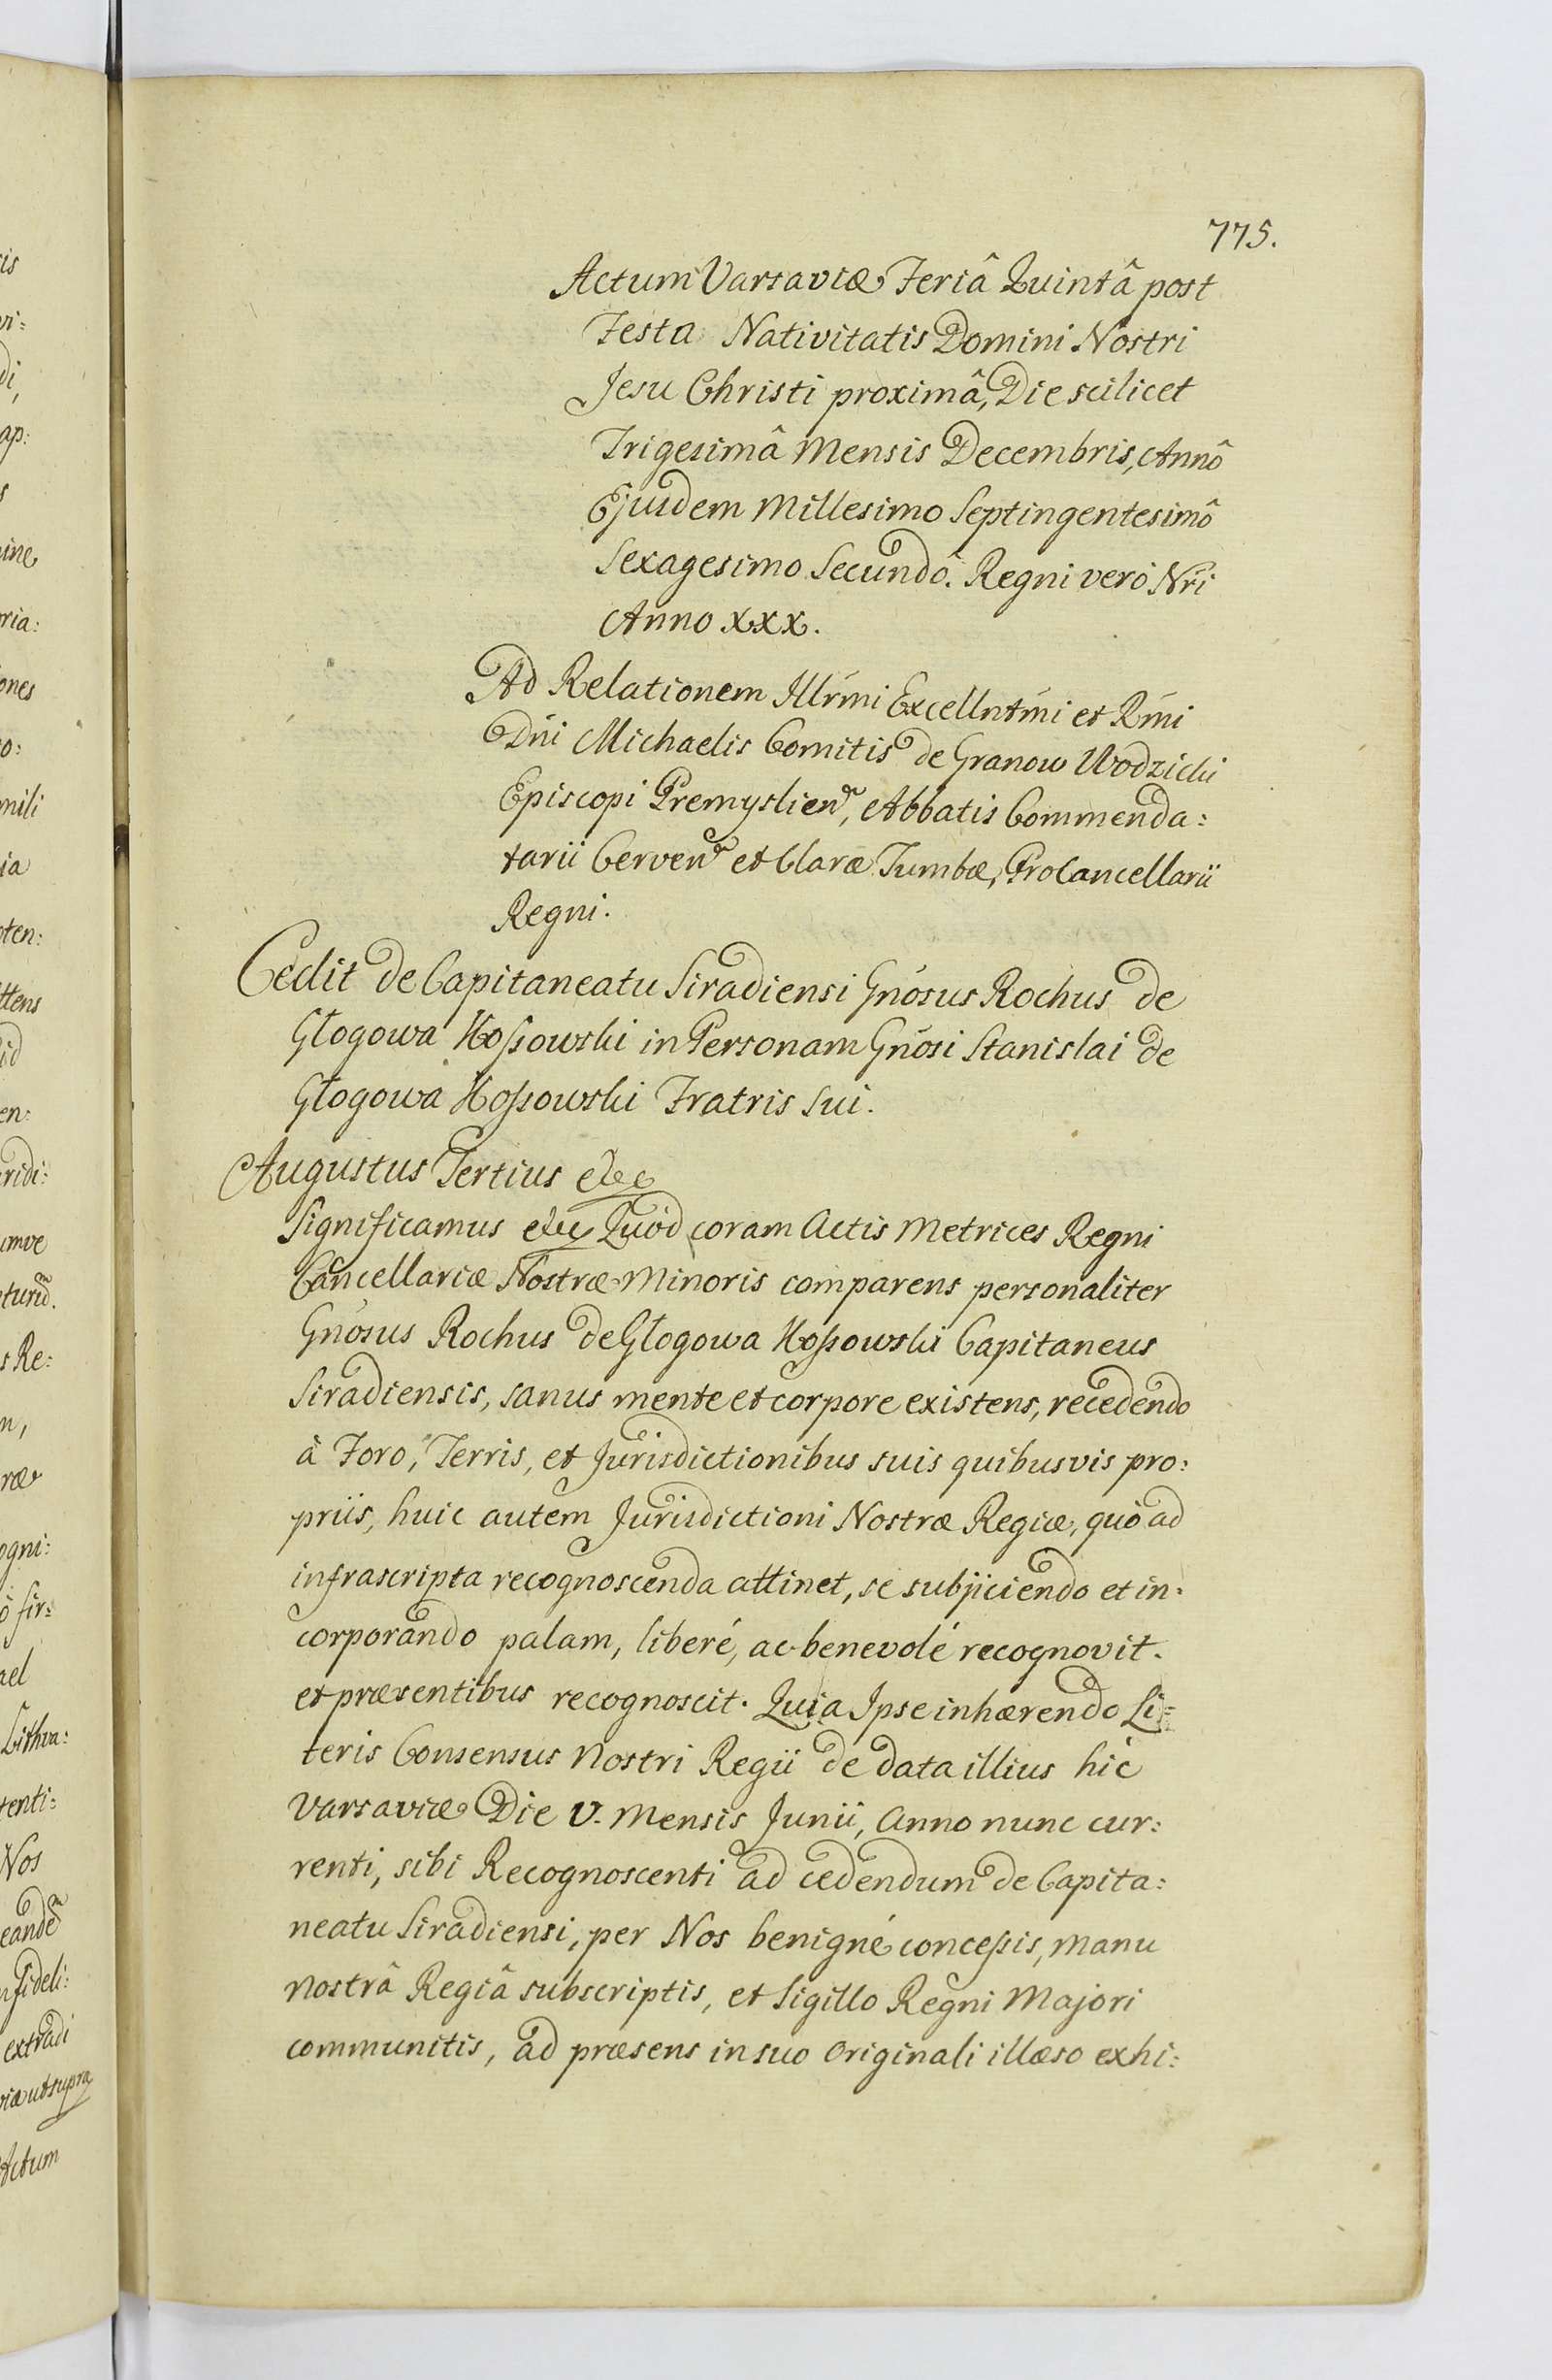 775.
Actum Varsaviæ Feriâ Quintâ post
Festa Nativitatis Domini Nostri
Jesu Christi proximâ, Die scilicet
Trigesimâ Mensis Decembris, Annô
Ejusdem Millesimo Septingentesimô
Sexagesimo Secundô. Regni verò Nrí
Anno XXX.
Ad Relationem Illrḿi Excellntḿi et Rḿi
Dńi Michaelis Comitis de Granow Wodzicki
Episcopi Premyslien, Abbatis Commenda:
tarii Cerven et Claræ Tumbæ, ProCancellarii
Regni.
Cedit de Capitaneatu Siradiensi Gnósus Rochus de
Głogowa Kossowski in Personam Gnósi Stanislai de
Głogowa Kossowski Fratris Sui.
Augustus Tertius etc
Significamus etc Quòd coram Actis Metrices Regni
Cancellariæ Nostræ Minoris comparens personaliter
Gnósus Rochus de Głogowa Kossowski Capitaneus
Siradiensis, sanus mente et corpore existens, recedendo
à Foro, Terris, et Jurisdictionibus suis quibusvis pro:
priis, huic autem Jurisdictioni Nostræ Regiæ, quò ad
infrascripta recognoscenda attinet, se subjiciendo et in:
corporando palam, liberé, ac benevolé recognovit.
et præsentibus recognoscit. Quia Ipse inhærendo Li:
teris Consensus Nostri Regii de data illius hìc
Varsaviæ Die V. Mensis Junii, Anno nunc cur:
renti, sibi Recognoscenti ad cedendum de Capita:
neatu Siradiensi, per Nos benigné concessis, Manu
Nostrâ Regiâ subscriptis, et Sigillo Regni Majori
communitis, ad præsens in suo Originali illæso exhi: